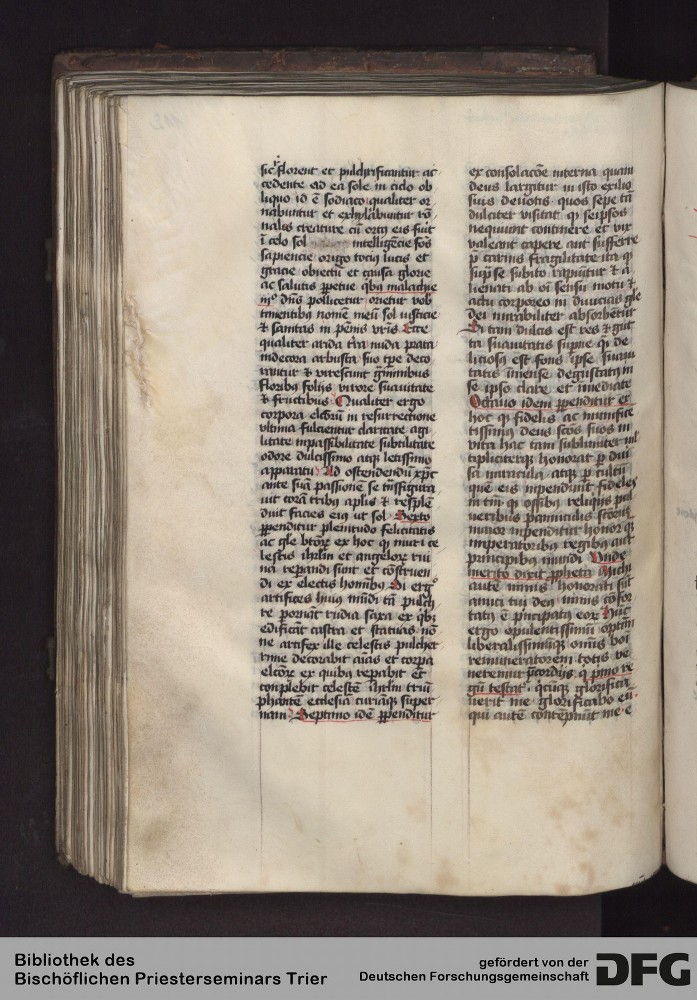 sic florent et pulchrificantur ac
cedente ad ea sole in circlo ob
liquo id ē zodiaco qualiter or
nabuntur et exhylarabuntur rō
nalis creature cū ortus eis fuīt
ī celo sol intelligēcie fōs
sapiencie origo tocius lucis et
gracie obiectū et causa glorie
ac salutis ppetue qbus malachie
iiijº dn̄s pollicetur orietur vob
timentibus nomē meū sol iusticie
et sanitas in pēnis vris Ecce
qualiter arida tr̄a nuda prata
indecora arbusta suo tpe deco
rantur et virescunt gminibus
floribus folijs virore suauitate
et fructibus Qualiter ergo
corpora electorū in resurrectione
vltima fulcientur claritate agi
litate inpassibilitate subtilitate
odore dulcissimo atque letissimo
apparatu Ad ostendendū xpc
ante suā passionē se trāsfigura
uit corā tribus aplis et resplē
duit facies eius ut sol Sexto
ppenditur plenitudo felicitatis
ac gle btorum ex hoc qr muri ce
lestis ihrlm et angelorum rui
na repandi sunt et cōstruen
di ex electis hominibus Si ergo
artifices huius mūdi tā pulch
re poriunt rudia saxa ex qbus
edificāt castra et statuas nō
ne artifex ille celestis pulcher
rime decorabit aīas et corpa
electorum ex quibus repabit et
conplebit celestē ihrlm triū
phantē ecclesiā curiāque super
nam Septimo idē ppenditur
ex consolacōe interna quam
deus largitur in isto exilio
suis deuotis quos sepe tā
dulciter visitat qr seipsos
nequiunt continere et vix
valeant capere aut sufferre
p carnis fragilitate ita qr
supra se subito rapiuntur et a
lienati ab oī sensu motu et
actu corporeo in diuicias gle
dei mirabiliter absorbētur
Si tam dulcis est res et gut
ta suauitatis supne qr de
liciosus est fons ipse suaui
tatis īmense degustatus in
se ipso clare et īmediate
Octauo idem ppenditur ex
hoc qr fidelis ac munifice
tissimus deus scōs suos in
vita hac tam sublimiter ml
tipliciterque honorat p diui
sa miracula atque p cultū
quē eis inpendunt fideles
in tm̄ qr ossibus reliquijs pul
ueribus panniculis scōrum
maior inpenditur honor quam
imperatoribus regibus aut
principibus mundi Unde
merito dixit ppheta Michi
autē nimis honorati sūt
amici tui deus nimis cōfor
tatus ē principatus eorum Hūc
ergo opulentissimū optim
liberalissimūque omnis boī
remuneratorem totis ve
neremur precordijs q pmo re
gū testat qcūque glorifica
uerit me glorificabo eū
qui autē contēpnūt me e
Bibliothek des
Bischöflichen Priesterseminars Trier
gefördert von der
Deutschen Forschungsgemeinschaft
DFG